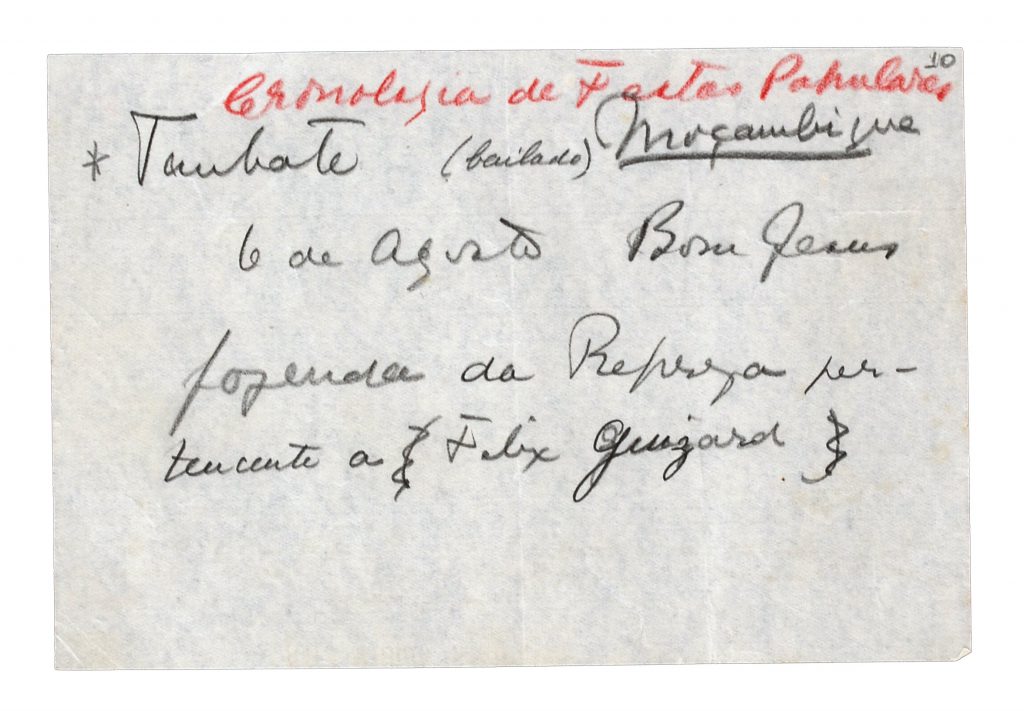 10
Cronologia de Festas Populares
* Taubate (bailado) Moçambique
6 de Agosto Bom Jesus
fazenda da Represa per-
tencente a { Felix Guizard }